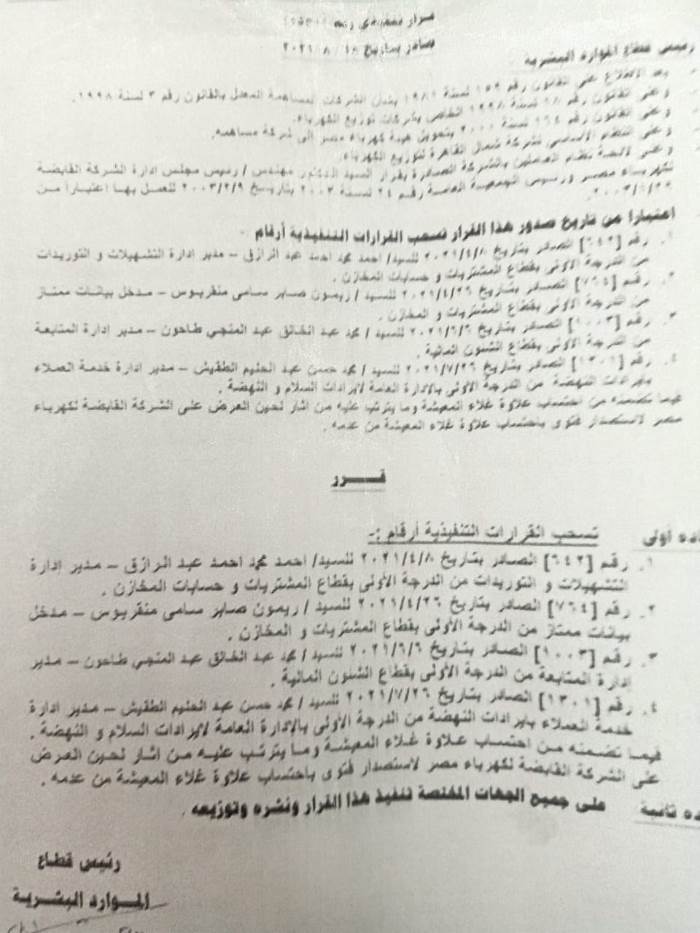 قرار تنفيذي رقم
صادر بتاريخ ٢٠٢١/٨/١٨
رئيس قطاع الموارد البشرية
بعد الاطلاع على القانون رقم ١٥٩ لسنة ١٩٨١ بشأن الشركات المساهمة المعدل بالقانون رقم ٣ لسنة ١٩٩٨.
وعلى القانون رقم ١٨ لسنة ١٩٩٨ الخاص بشركات توزيع الكهرباء.
وعلى القانون رقم ١٦٤ لسنة ٢٠٠٠ بتحويل هيئة كهرباء مصر إلى شركة مساهمة.
وعلى النظام الأساسي لشركة شمال القاهرة لتوزيع الكهرباء.
وعلى لائحة نظام العاملين بالشركة الصادرة بقرار السيد الدكتور مهندس / رئيس مجلس إدارة الشركة القابضة
لكهرباء مصر ورئيس الجمعية العامة رقم ٢٤ لسنة ٢٠٠٣ بتاريخ ٢٠٠٣/٢/٩ للعمل بها اعتباراً من
اعتباراً من تاريخ صدور هذا القرار تسحب القرارات التنفيذية أرقام :-
١. رقم [٦٤٢] الصادر بتاريخ ٢٠٢١/٤/٨ للسيد/ احمد محمد احمد عبد الرازق – مدير إدارة التسهيلات و التوريدات
من الدرجة الأولى بقطاع المشتريات و حسابات المخازن .
٢. رقم [٧٦٤] الصادر بتاريخ ٢٠٢١/٤/٢٦ للسيد / ريمون صابر سامى منقريوس – مدخل بيانات ممتاز
من الدرجة الأولى بقطاع المشتريات و المخازن .
٣. رقم [١٠٠٣] الصادر بتاريخ ٢٠٢١/٦/٦ للسيد / محمد عبد الخالق عبد المنجي طاحون – مدير إدارة المتابعة
من الدرجة الأولى بقطاع الشئون المالية .
٤. رقم [١٣٠١] الصادر بتاريخ ٢٠٢١/٧/٢٦ للسيد / محمد حسن عبد الحليم الطقيش – مدير إدارة خدمة العملاء
بايرادات النهضة من الدرجة الأولى بالإدارة العامة لايرادات السلام و النهضة .
فيما تضمنه من احتساب علاوة غلاء المعيشة وما يترتب عليه من اثار لحين العرض على الشركة القابضة لكهرباء
مصر لاستصدار فتوى باحتساب علاوة غلاء المعيشة من عدمه .
قـــــرر
ماده أولى تسحب القرارات التنفيذية أرقام :-
١. رقم [٦٤٢] الصادر بتاريخ ٢٠٢١/٤/٨ للسيد/ احمد محمد احمد عبد الرازق – مدير إدارة
التسهيلات و التوريدات من الدرجة الأولى بقطاع المشتريات و حسابات المخازن .
٢. رقم [٧٦٤] الصادر بتاريخ ٢٠٢١/٤/٢٦ للسيد / ريمون صابر سامى منقريوس – مدخل
بيانات ممتاز من الدرجة الأولى بقطاع المشتريات و المخازن .
٣. رقم [١٠٠٣] الصادر بتاريخ ٢٠٢١/٦/٦ للسيد / محمد عبد الخالق عبد المنجي طاحون – مدير
إدارة المتابعة من الدرجة الأولى بقطاع الشئون المالية .
٤. رقم [١٣٠١] الصادر بتاريخ ٢٠٢١/٧/٢٦ للسيد / محمد حسن عبد الحليم الطقيش – مدير إدارة
خدمة العملاء بايرادات النهضة من الدرجة الأولى بالإدارة العامة لايرادات السلام و النهضة .
فيما تضمنه من احتساب علاوة غلاء المعيشة وما يترتب عليه من اثار لحين العرض
على الشركة القابضة لكهرباء مصر لاستصدار فتوى باحتساب علاوة غلاء المعيشة من عدمه .
ماده ثانية على جميع الجهات المختصة تنفيذ هذا القرار ونشره وتوزيعه .
رئيس قطاع
الموارد البشرية